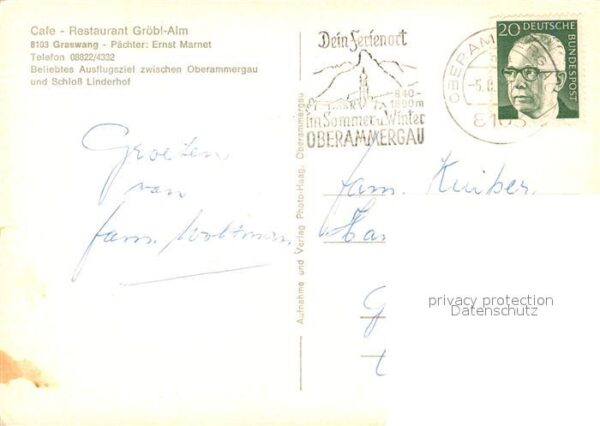 Cafe - Restaurant Gröbl-Alm
8103 Graswang - Pächter: Ernst Marnet
Telefon 08822/4332
Beliebtes Ausflugsziel zwischen Oberammergau
und Schloß Linderhof
Groeten
van
fam. Woltman
Aufnahme und Verlag Photo-Haag, Oberammergau
Dein Ferienort
840-
1800m
im Sommer u. Winter
OBERAMMERGAU
OBERAM
-5.8.
8103
20 DEUTSCHE
BUNDESPOST
fam. Kuiber
privacy protection
Datenschutz